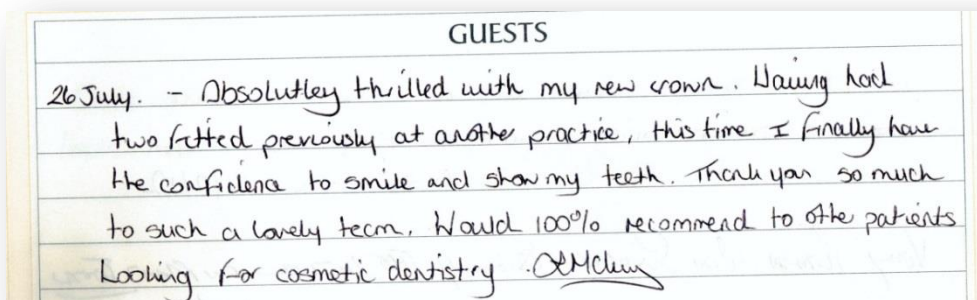 GUESTS
26 July. - Absolutley thrilled with my new crown. Having had
two fitted previously at another practice, this time I finally have
the confidence to smile and show my teeth. Thank you so much
to such a lovely team. Would 100% recommend to othe patients
Looking for cosmetic dentistry.